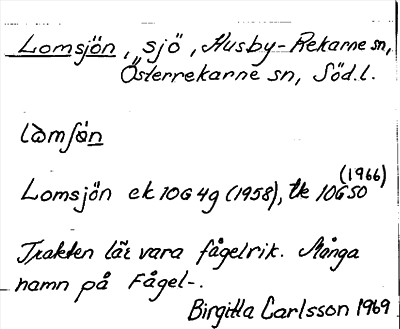 Lomsjön, sjö, Husby-Rekarne sn,
Österrekarne sn, Söd.l.
Lomsjön ek 10G 4g (1958), tk 10G SO (1966)
Trakten lär vara fågelrik. Många
namn på Fågel-.
Birgitta Carlsson 1969